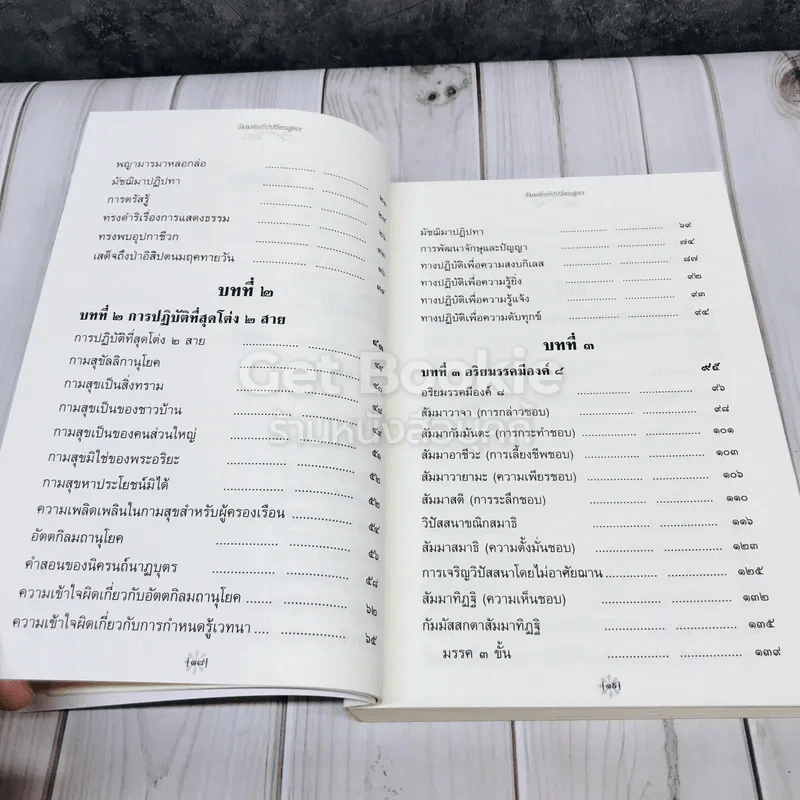 ธัมมจักกัปปวัตนสูตร
พญามารมาหลอกล่อ
มัชฌิมาปฏิปทา
การตรัสรู้
ทรงดำริเรื่องการแสดงธรรม
ทรงพบอุปกาชีวก
เสด็จถึงป่าอิสิปตนมฤคทายวัน
บทที่ ๒
บทที่ ๒ การปฏิบัติที่สุดโต่ง ๒ สาย
การปฏิบัติที่สุดโต่ง ๒ สาย
กามสุขัลลิกานุโยค
กามสุขเป็นสิ่งทราม
กามสุขเป็นของชาวบ้าน
กามสุขเป็นของคนส่วนใหญ่
กามสุขมิใช่ของพระอริยะ ๕๑
กามสุขหาประโยชน์มิได้ ๕๒
ความเพลิดเพลินในกามสุขสำหรับผู้ครองเรือน ๕๒
อัตตกิลมถานุโยค ๕๔
คำสอนของนิครนถ์นาฏบุตร ๕๖
๕๘
ความเข้าใจผิดเกี่ยวกับอัตตกิลมถานุโยค ๖๒
ความเข้าใจผิดเกี่ยวกับการกำหนดรู้เวทนา ๖๕
[๑๘]
ธัมมจักกัปปวัตนสูตร
มัชฌิมาปฏิปทา ๖๙
การพัฒนาจักษุและปัญญา ๗๔
ทางปฏิบัติเพื่อความสงบกิเลส ๘๗
ทางปฏิบัติเพื่อความรู้ยิ่ง ๙๒
ทางปฏิบัติเพื่อความรู้แจ้ง ๙๓
ทางปฏิบัติเพื่อความดับทุกข์ ๙๔
บทที่ ๓
บทที่ ๓ อริยมรรคมีองค์ ๘ ๙๕
อริยมรรคมีองค์ ๘ ๙๖
สัมมาวาจา (การกล่าวชอบ) ๙๘
สัมมากัมมันตะ (การกระทำชอบ) ๑๐๑
สัมมาอาชีวะ (การเลี้ยงชีพชอบ) ๑๐๓
สัมมาวายามะ (ความเพียรชอบ) ๑๐๖
สัมมาสติ (การระลึกชอบ) ๑๑๐
วิปัสสนาขณิกสมาธิ ๑๑๖
สัมมาสมาธิ (ความตั้งมั่นชอบ) ๑๒๓
การเจริญวิปัสสนาโดยไม่อาศัยฌาน ๑๒๕
สัมมาทิฏฐิ (ความเห็นชอบ) ๑๓๒
กัมมัสสกตาสัมมาทิฏฐิ ๑๓๕
มรรค ๓ ขั้น ๑๓๙
[๑๙]
Get Bookie